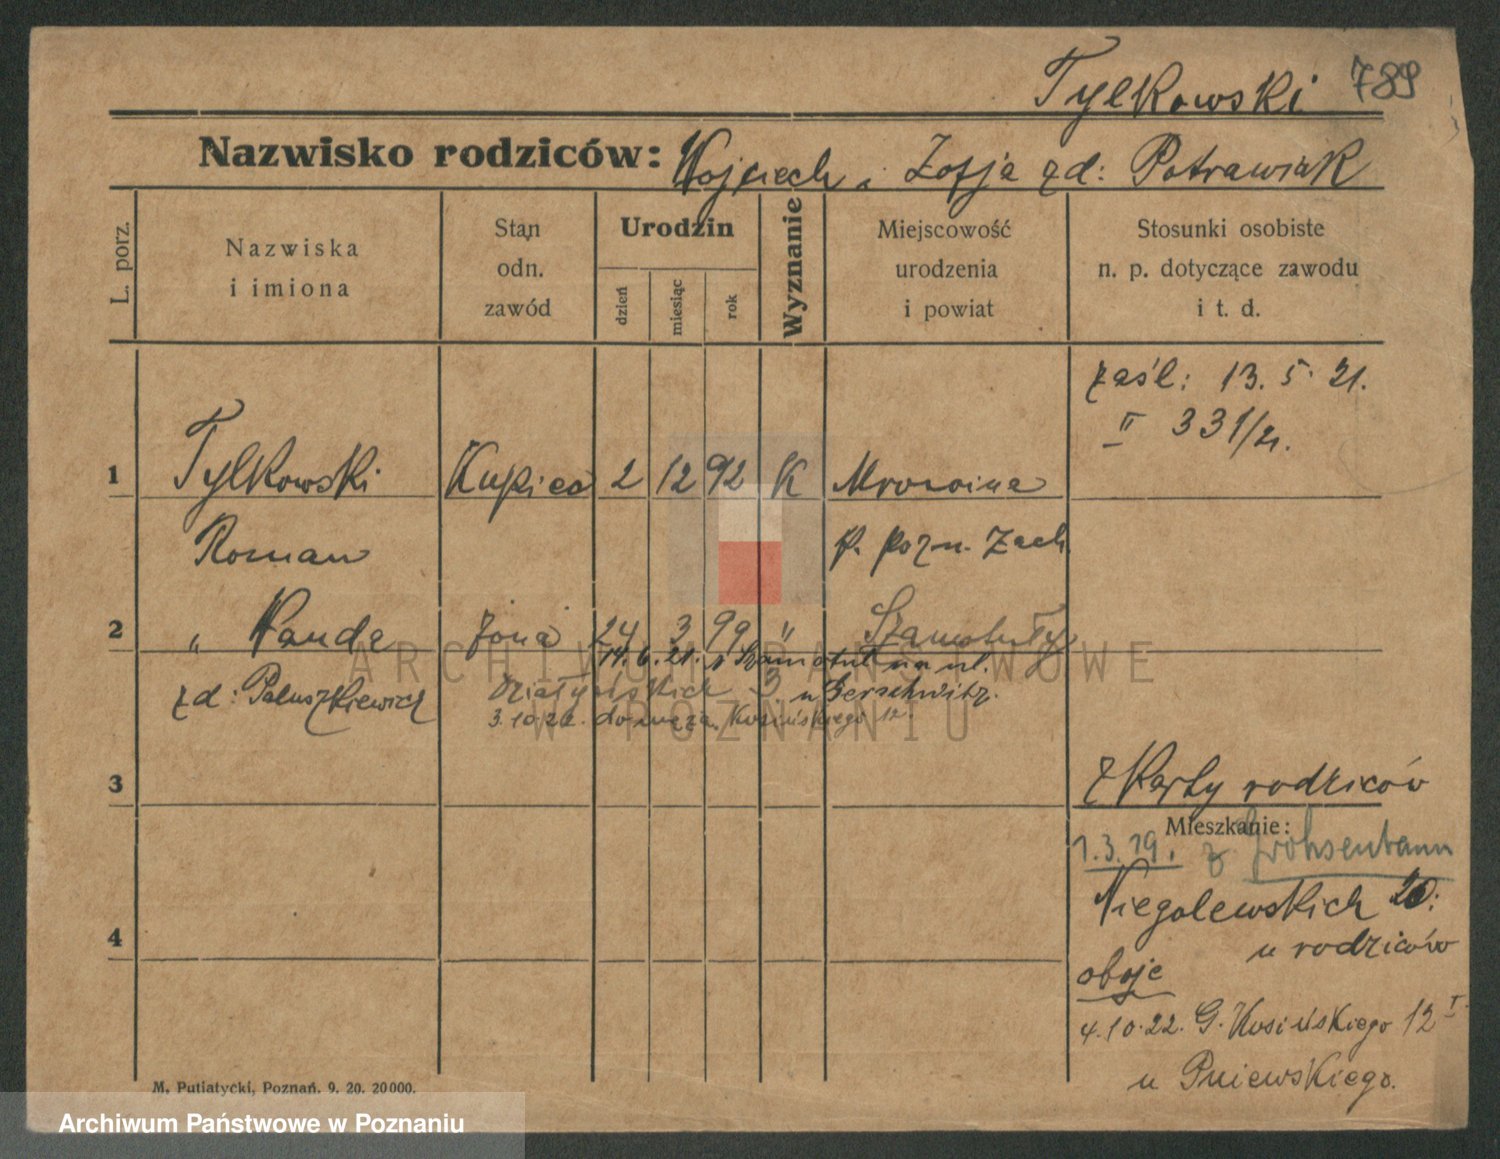 Tylkowski 789
Nazwisko rodziców: Wojciech i Zofja zd: Potrawiak
L. porz.
Nazwiska
i imiona
Stan
odn.
zawód
Urodzin
dzień
miesiąc
rok
Wyznanie
Miejscowość
urodzenia
i powiat
Stosunki osobiste
n. p. dotyczące zawodu
i t. d.
zaśl: 13. 5. 21.
II 331/21.
1 Tylkowski Kupiec 2 12 92 K Mrowina
Roman p. Pozn. Zach.
2 " Wanda żona 24 3 99 " Szamotuły
14. 6. 21. Szamotuł na ul.
zd: Paluszkiewicz Działyńskich 3 u Gerschwitz.
3.10.22. do męża. Kosińskiego 12.
3
z Karty rodziców
Mieszkanie:
1.3.19. z
Niegolewskich 20;
u rodziców
4
oboje
4.10.22. G. Kosińskiego 12 I.
u Pniewskiego.
M. Putiatycki, Poznań. 9. 20. 20000.
ARCHIWUM PAŃSTWOWE
W POZNANIU
Archiwum Państwowe w Poznaniu